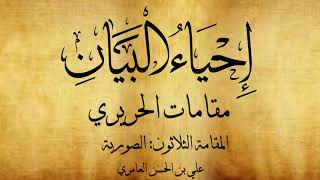 إِحْيَاءُ الْبَيَانِ
مقامات الحريري
المقامة الثلاثون: الصورية
علي بن الحسن العامري